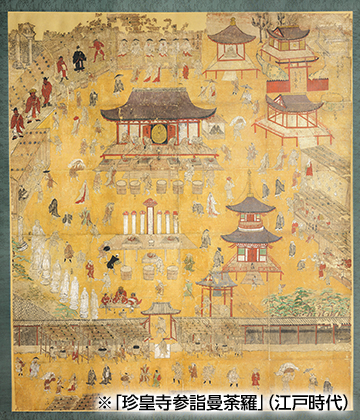 ※「珍皇寺参詣曼荼羅」(江戸時代)